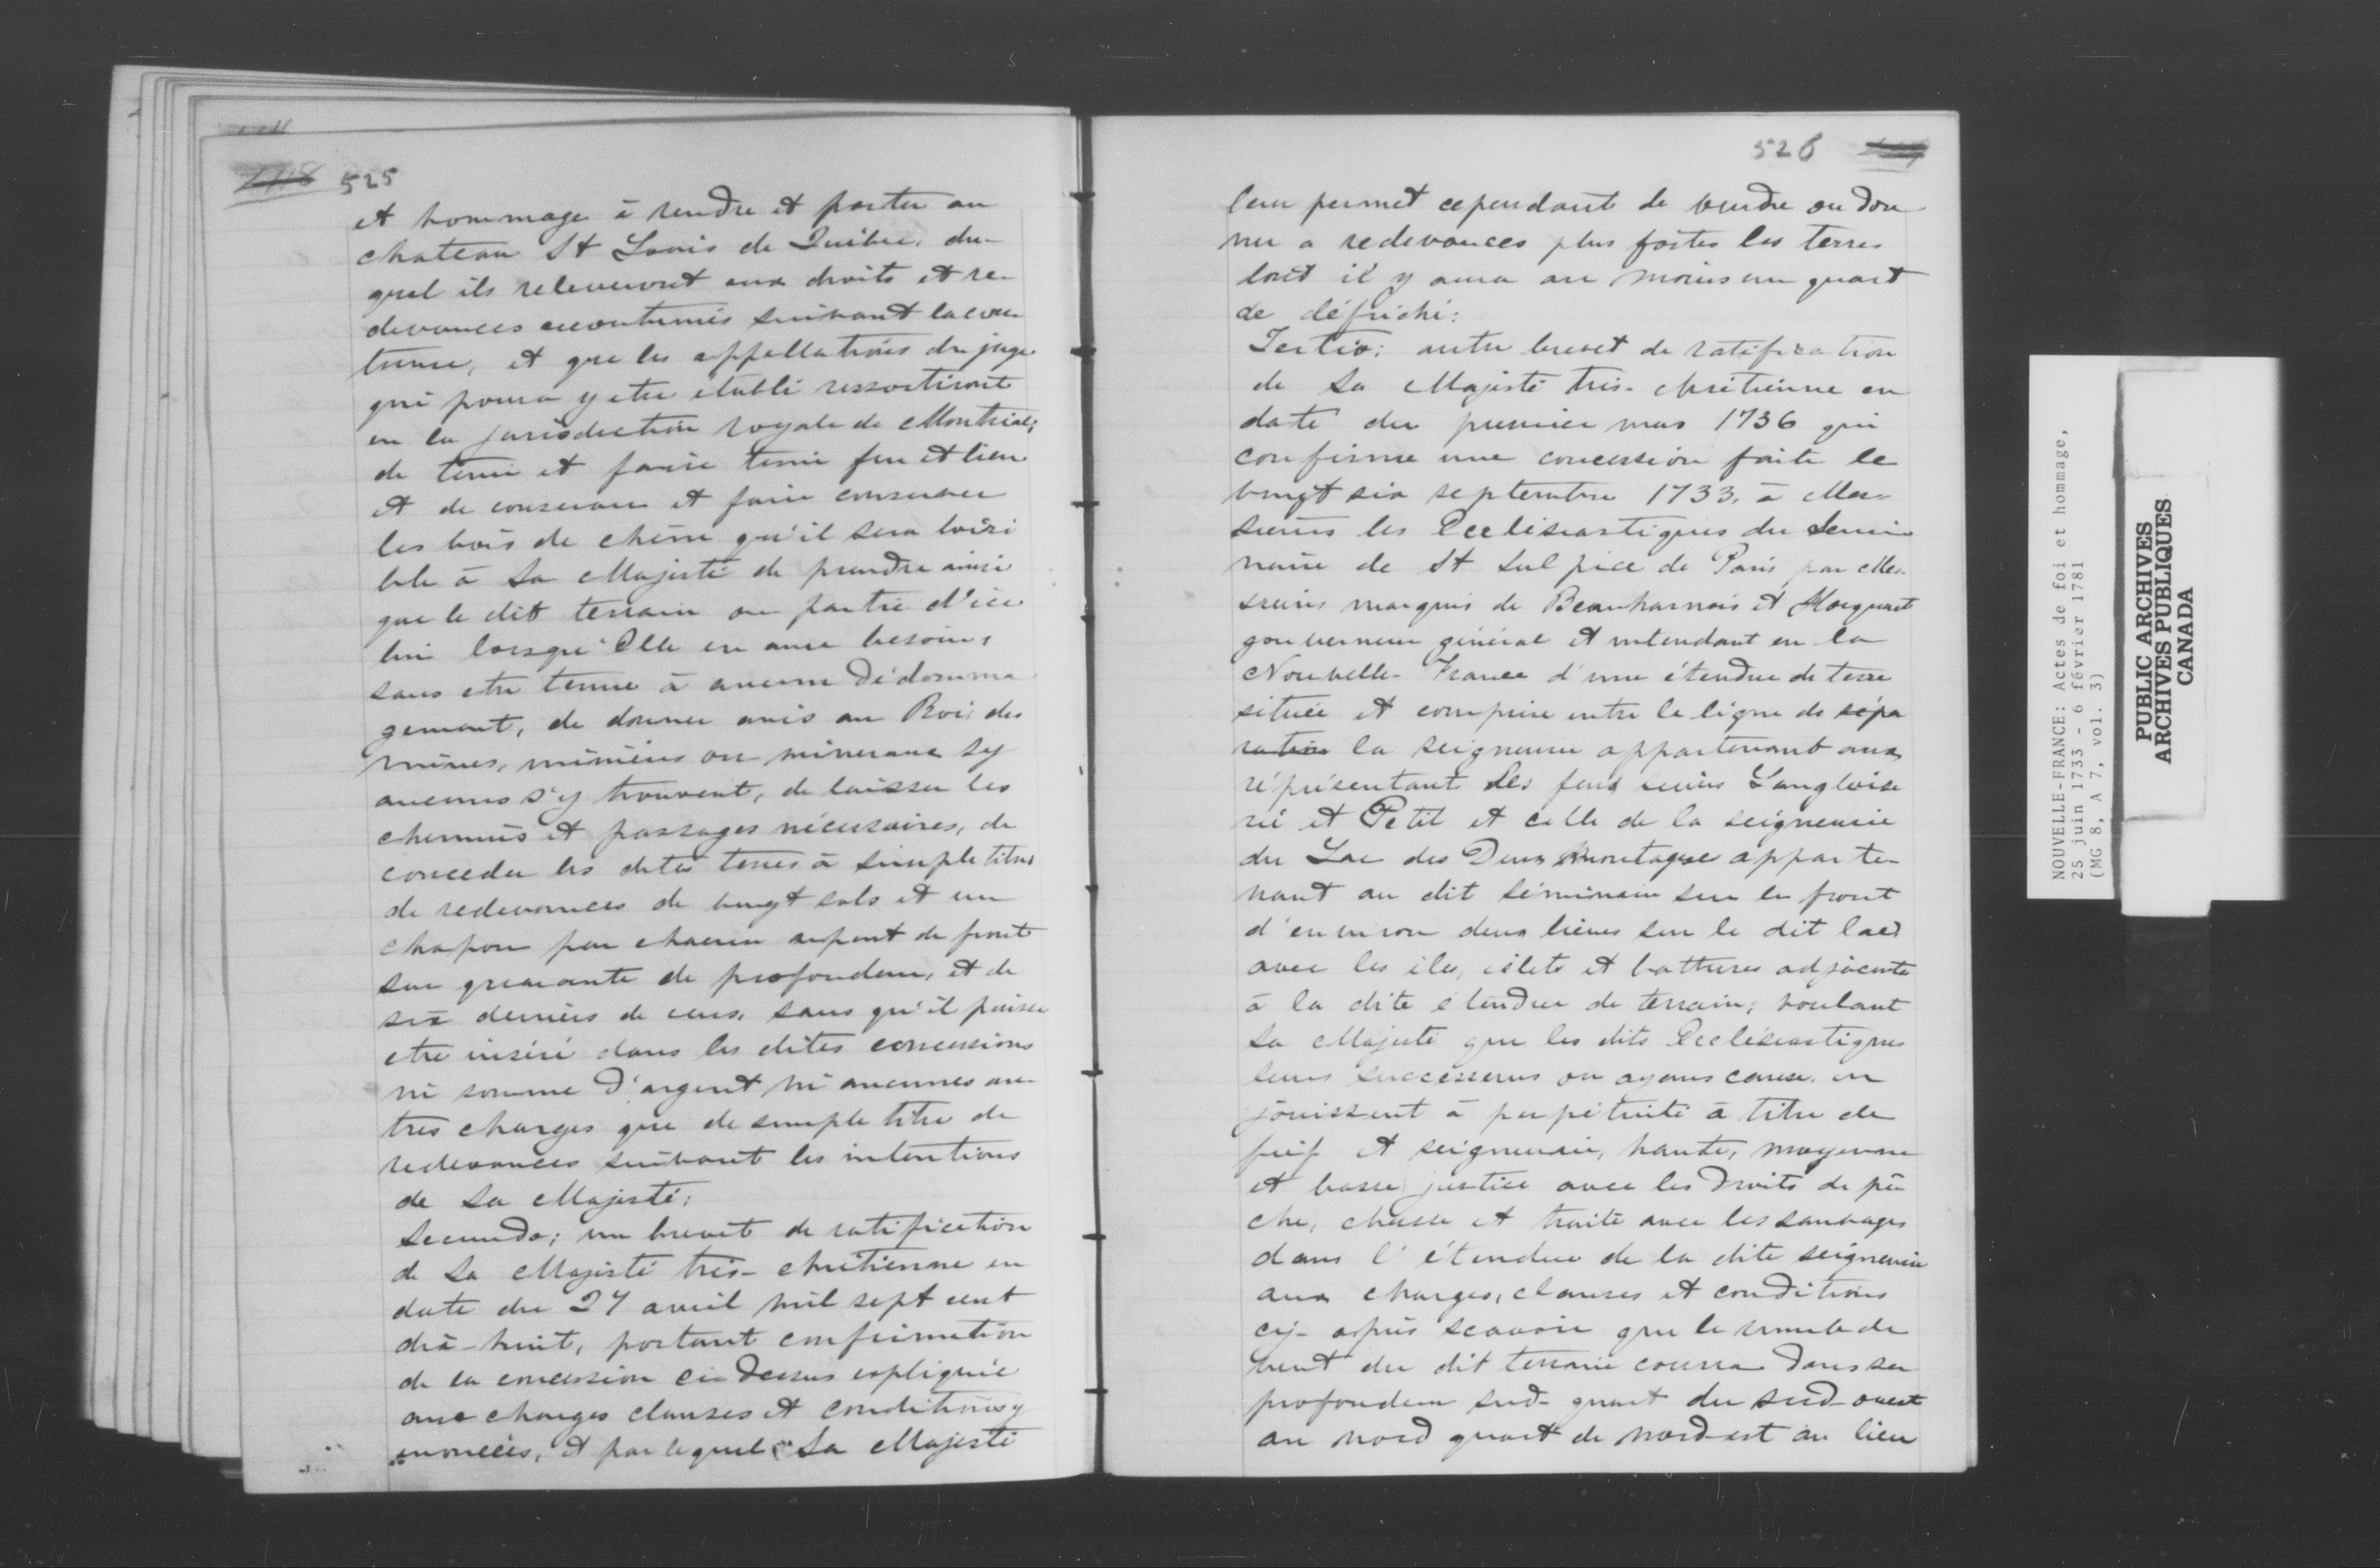 525
et hommage à rendre et porter au
chateau St Louis de Québec, du-
quel ils releveront aux droits et re-
devances accoutumés suivant la cou
tume, et que les appellations du juge
qui poura y etre établi ressortiront
en la jurisdiction royale de Montréal;
de tenir et faire tenir feu et lieu
et de conserver et faire conserver
les bois de chêne qu'il sera loisi
ble à Sa Majesté de prendre ainsi
que le dit terrain ou partie d'ice
lui lorsqu'Elle en aura besoin,
sans etre tenue à aucun dédomma
gement, de donner avis au Roi des
mines, minières ou mineraux sy
aucuns s'y trouvent, de laisser les
chemins et passages nécessaires, de
conceder les dites terres à simple titre
de redevances de vingt sols et un
chapon par chacun arpent de front
sur quarante de profondeur, et de
six deniers de cens, sans qu'il puisse
etre inséré dans les dites concessions
ni somme d'argent ni aucunes au-
tres charges que de simple titre de
redevances suivant les intentions
de Sa Majesté;
Secundo; un brevet de ratification
de Sa Majesté très-chrétienne en
date du 27 avril mil sept cent
dix-huit, portant confirmation
de la concession ci dessus expliquée
aux charges clauses et conditions y
enoncées, et par lequel Sa Majesté
526
leur permet cependant de vendre ou don
ner a redevances plus fortes les terres
dont il y aura au moins un quart
de défriché:
Tertio: autre brevet de ratification
de Sa Majesté très-chrétienne en
date du premier mars 1736 qui
confirme une concession faite le
vingt six septembre 1733, à Mes-
sieurs les Ecclésiastiques du Semi
naire de St Sulpice de Paris par Mes-
sieurs marquis de Beauharnois et Hocquart
gouverneur général et intendant en la
Nouvelle-France d'une étendue de terre
située et comprise entre la ligne de sépa
ration la seigneurie appartenant aux
réprésentant des feus sieurs Langloise
rie et Petit et celle de la seigneurie
du Lac des Deux Montagnes apparte-
nant au dit séminaire sur le front
d'environ deux lieues sur le dit lac
avec les iles, islets et battures adjacente
à la dite etendue de terrain; voulant
Sa Majesté que les dits Ecclésiastiques
leurs successeurs ou ayans cause en
jouissent à perpétuité à titre de
fief et seigneurie, haute, moyenne
et basse justice avec les droits de pê
che, chasse et traite avec les sauvages
dans l'étendue de la dite seigneurie
aux charges, clauses et conditions
cy-après scavoir que le rumb de
vent du dit terrain courra dans sa
profondeur sud-quart du sud-ouest
au nord quart de nord-est au lieu
NOUVELLE-FRANCE: Actes de foi et hommage,
25 juin 1733 - 6 février 1781
(MG 8, A 7, vol. 3)
PUBLIC ARCHIVES
ARCHIVES PUBLIQUES
CANADA